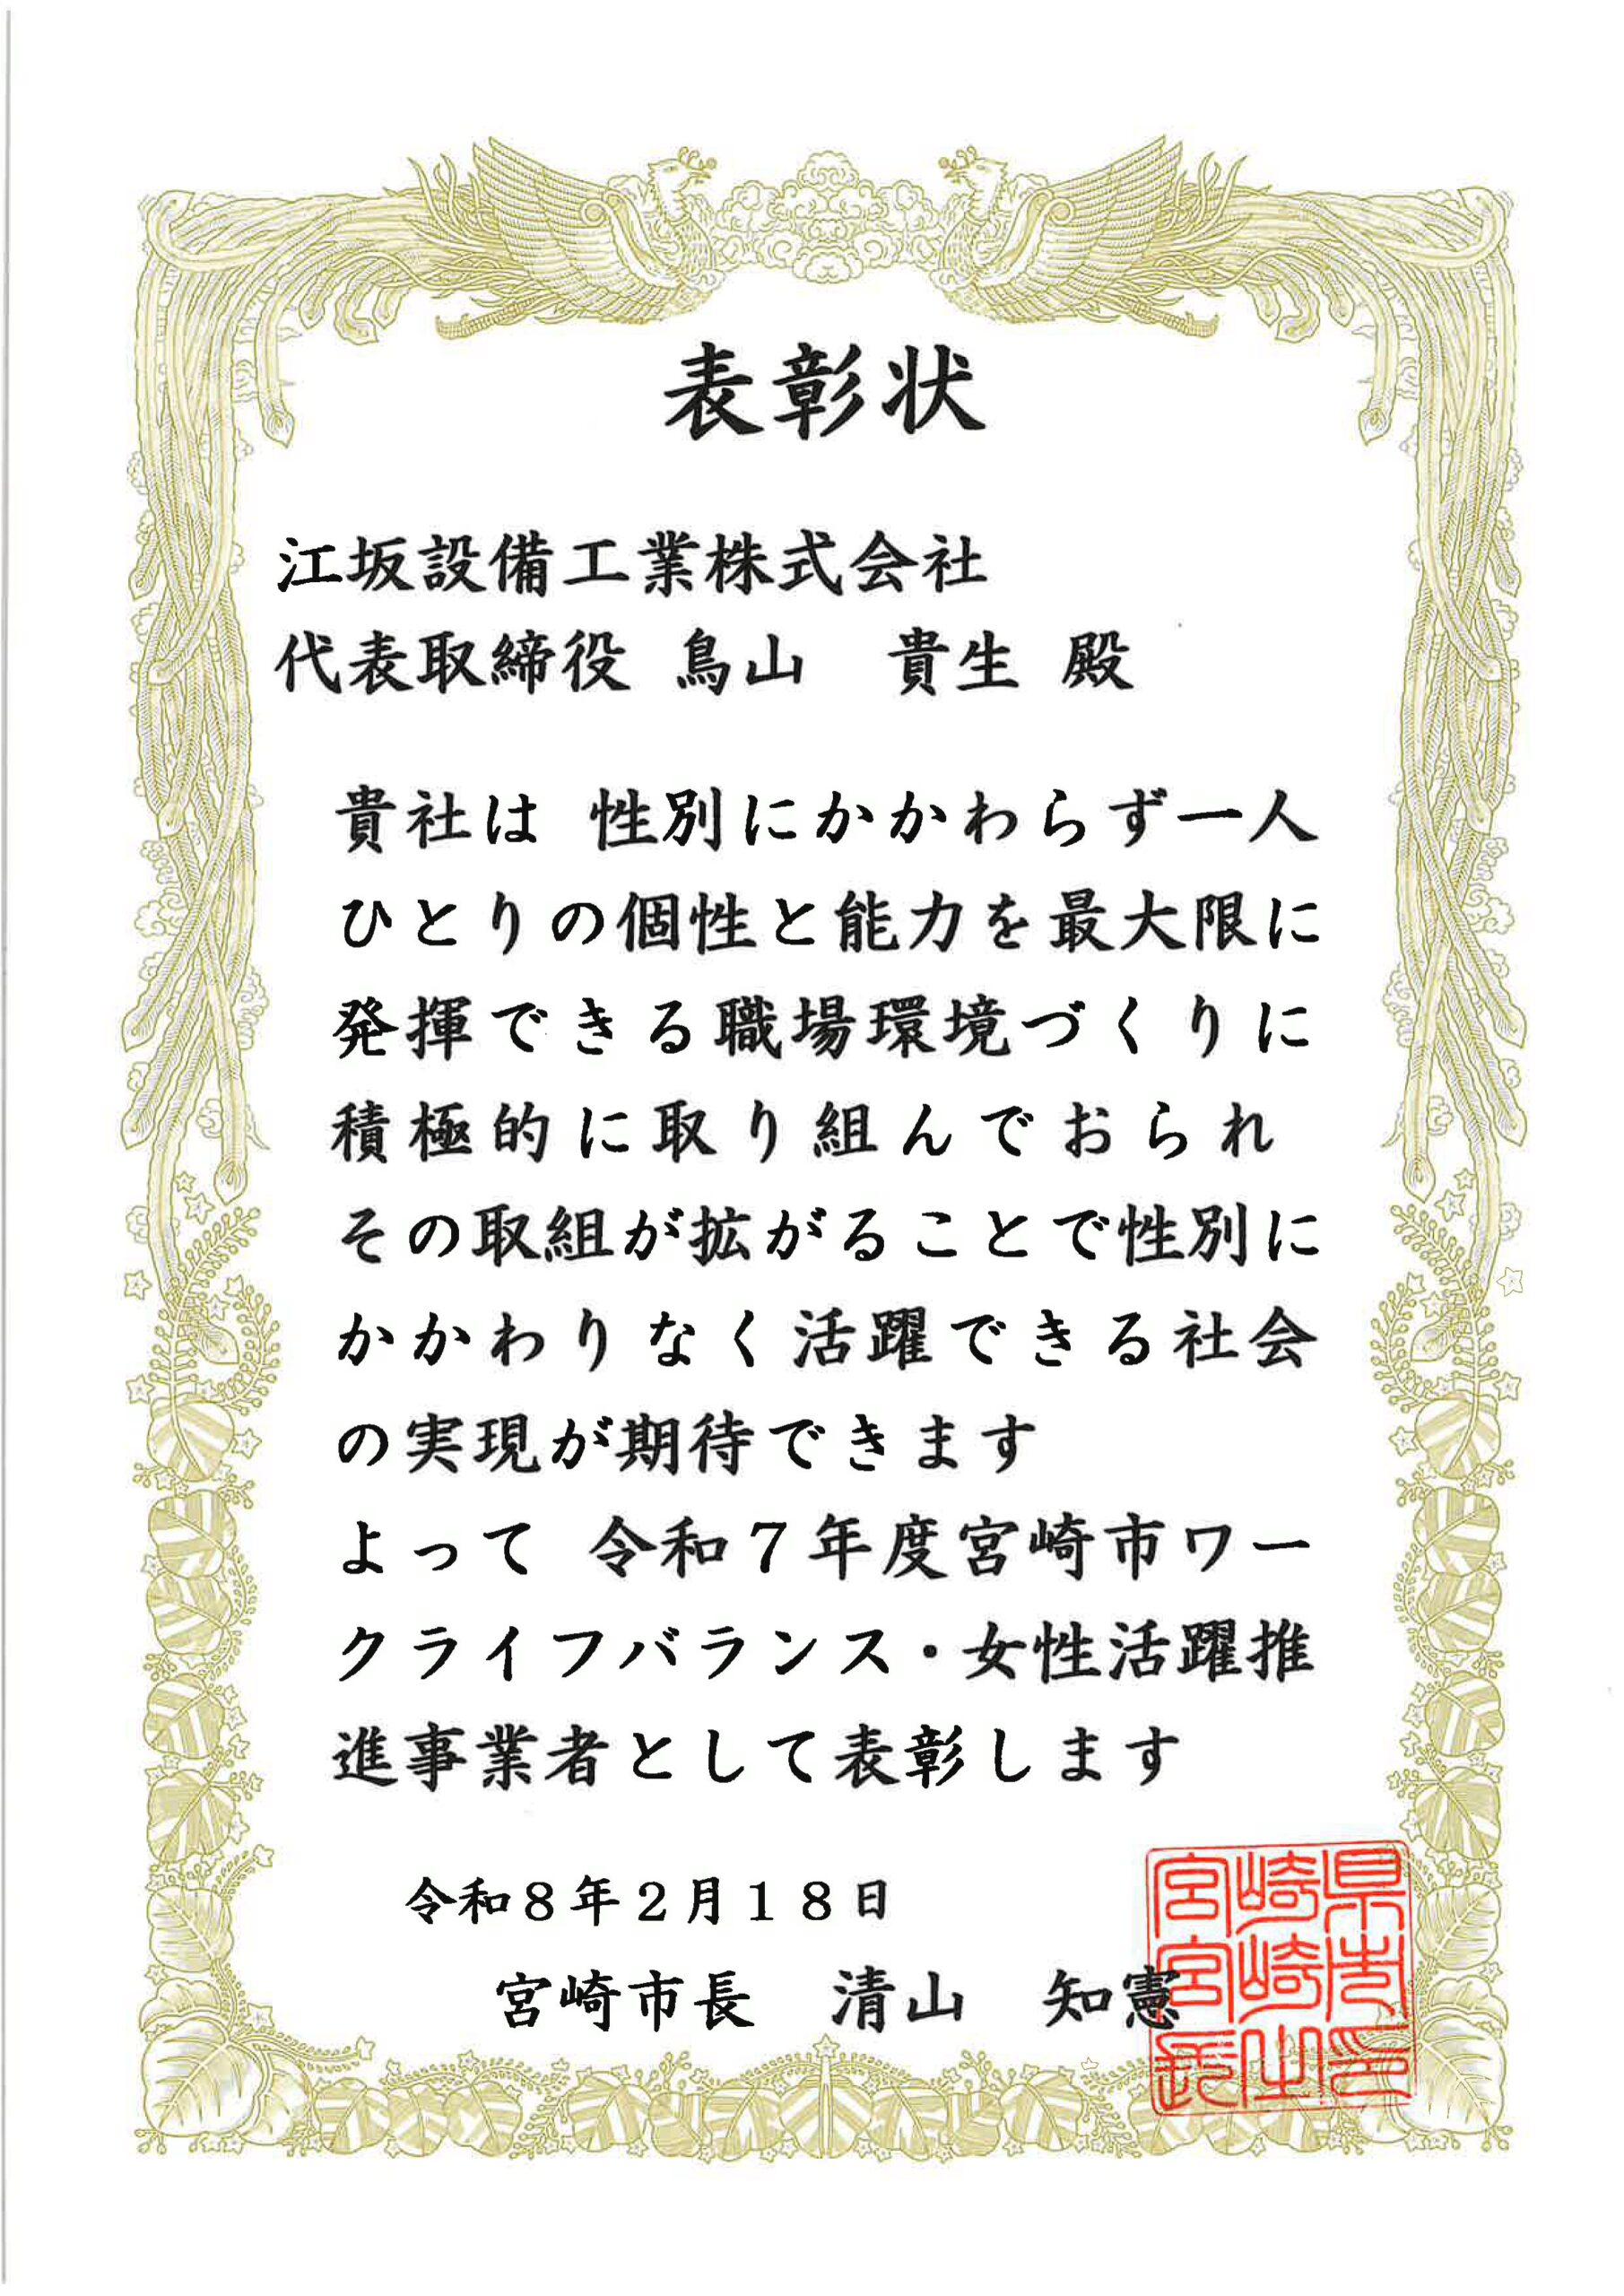 表彰状
江坂設備工業株式会社
代表取締役 鳥山　貴生 殿
貴社は 性別にかかわらず一人
ひとりの個性と能力を最大限に
発揮できる職場環境づくりに
積極的に取り組んでおられ
その取組が拡がることで性別に
かかわりなく活躍できる社会
の実現が期待できます
よって 令和７年度宮崎市ワー
クライフバランス・女性活躍推
進事業者として表彰します
令和８年２月１８日
宮崎市長　清山　知憲
宮崎県
宮崎市
長之印